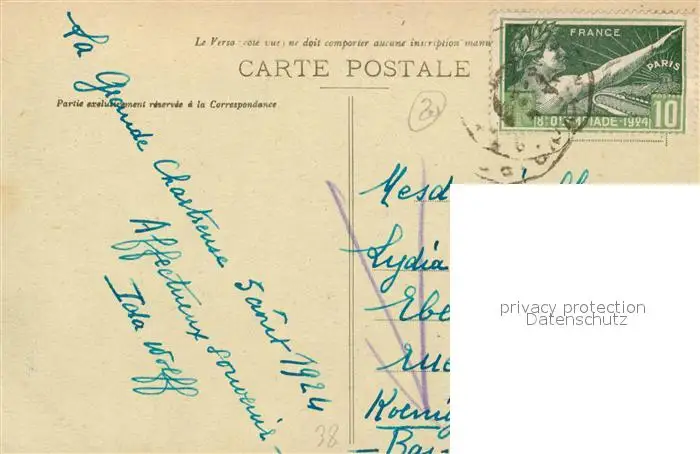 Le Verso (côté vue) ne doit comporter aucune inscription manu
CARTE POSTALE
Partie exclusivement réservée à la Correspondance
FRANCE
PARIS
8e OLYMPIADE-1924
10
La Grande Chartreuse 5 août 1924
Affectueux souvenir
Ida Wolff
Mesd
Lydia
Ebe
rue
Koenig
Bas
38
privacy protection
Datenschutz